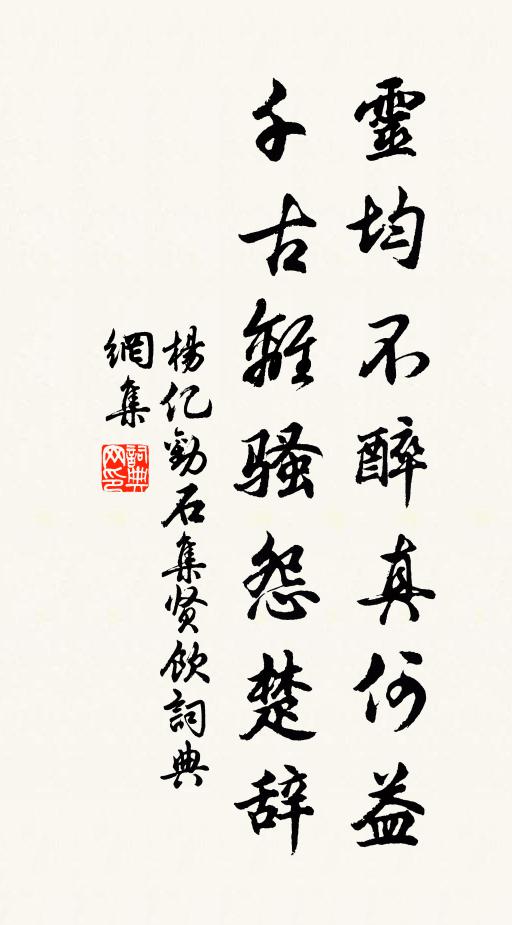 靈均不醉真何益
千古離骚怨楚辞
楊亿勸石集贤飲詞典
網集
詞典网印